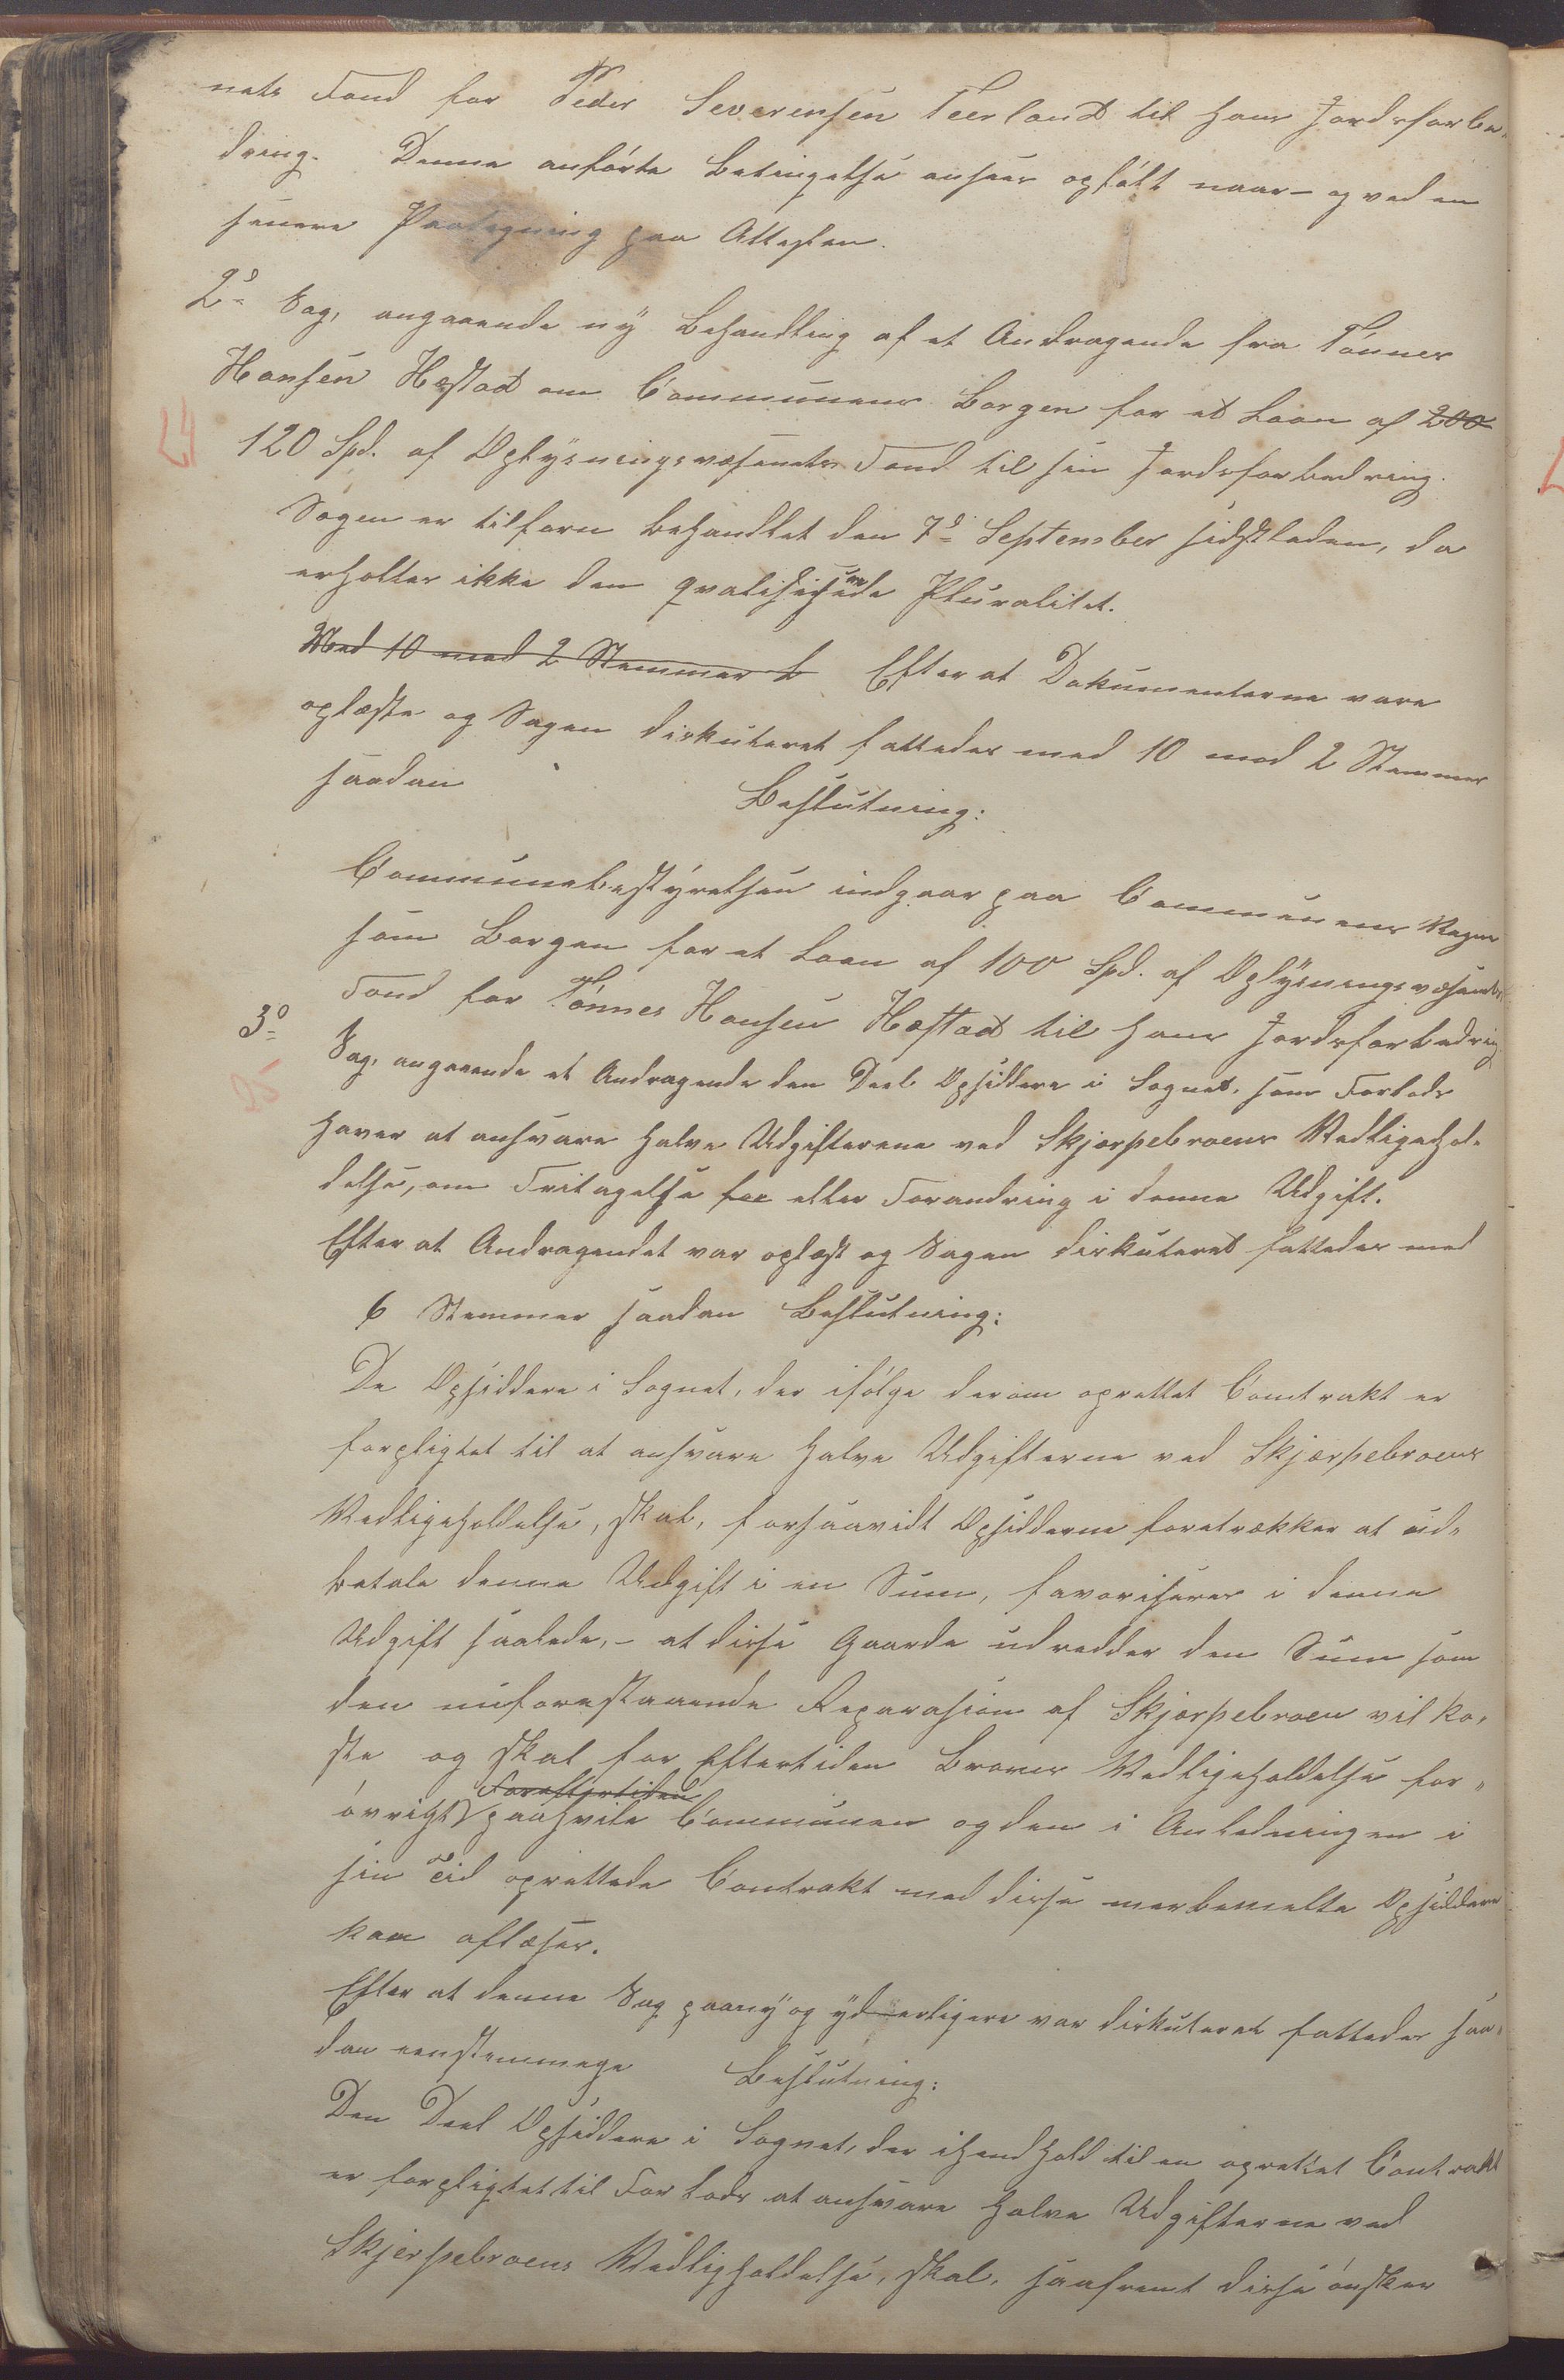 nets Fond for Peder Severensen Teerland til hans Jordsforbe-
dring. Denne anførte Betingelse ansees opfølt naar – og ved en
senere Paategning paa Attesten.
2º Sag, angaaende ny Behandling af et Andragende fra Tønnes
Hansen Hæstad om Communens Borgen for et Laan af 200
120 Spd. af Oplysningsvæsenets Fond til sin Jordsforbedring.
24
Sagen er tilforn behandlet den 7d September sidstleden, da
erholtes ikke den qvalificerede Pluralitet.
Med 10 mod 2 Stemmer b Efter at Dokumenterne vare
oplæste og Sagen diskuteret fattedes med 10 mod 2 Stemmer
saadan Beslutning:
Communebestyrelsen indgaar paa Communens Vegne
som Borgen for et Laan af 100 Spd. af Oplysningsvæsenets
Fond for Tønnes Hansen Hæstad til hans Jordsforbedring
3º Sag, angaaende et Andragende den Deel Opsiddere i Sognet, som Forlods
25
haver at ansvare halve Udgifterene ved Skjærpebroens Vedligehol-
delse, om Fritagelse for eller Forandring i denne Udgift.
Efter at Andragendet var oplæst og Sagen diskuteret fattedes med
6 Stemmer saadan Beslutning:
De Opsiddere i Sognet, der ifølge derom oprettet Contrakt er
forpligtet til at ansvare halve Udgifterne ved Skjærpebroens
Vedligeholdelse, skal, forsaavidt Opsidderne foretrækker at ud-
betale denne Udgift i en Sum, favoriseres i denne
Udgift saalede, – at disse Gaarde udredder den Sum som
den nuforestaaende Reparasion af Skjærpebroen vil ko-
ste og skal for Eftertiden Broens Vedligeholdelse for-
Foreftertiden
øvrigt paahvile Communen og den i Anledningen i
sin Tid oprettede Contrakt med disse merbemelte Opsiddere
kan afløses.
Efter at denne Sag paany og yderligere var diskuteret fattedes saa-
dan eenstemmige Beslutning:
Den Deel Opsiddere i Sognet, der i Hendhold til en oprettet Contrakt
er forpligtet til Forlods at ansvare halve Udgifterne ved
Skjerpebroens Vedligholdelse, skal, saafremt disse ønsker